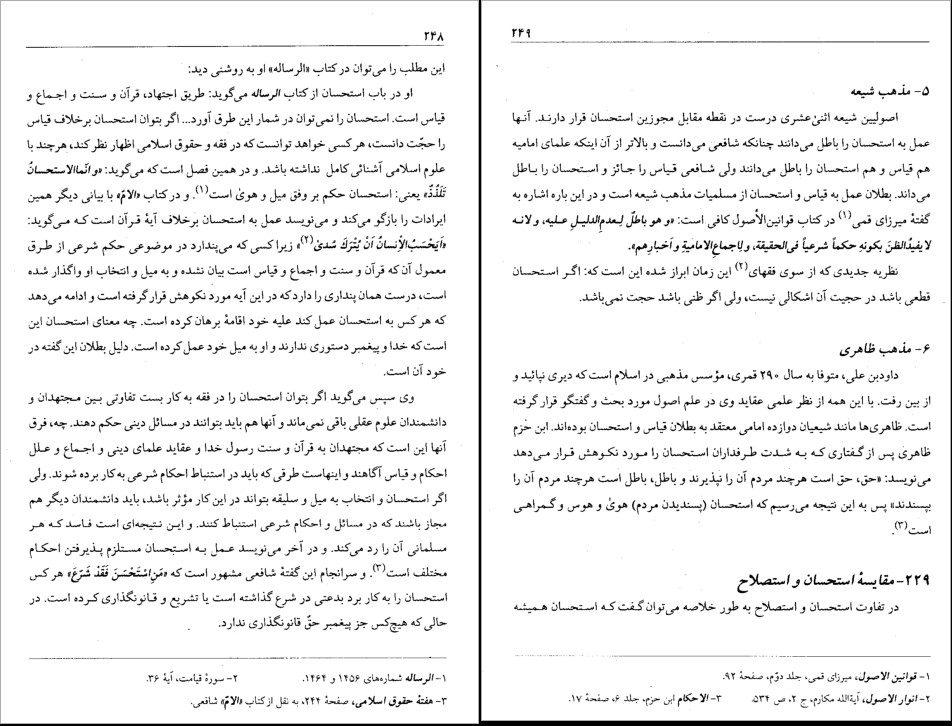 ۲۴۸
این مطلب را می‌توان در کتاب «الرساله» او به روشنی دید:
او در باب استحسان از کتاب الرساله می‌گوید: طریق اجتهاد، قرآن و سنت و اجماع و
قیاس است. استحسان را نمی‌توان در شمار این طرق آورد... اگر بتوان استحسان برخلاف قیاس
را حجّت دانست، هر کسی خواهد توانست که در فقه و حقوق اسلامی اظهار نظر کند، هرچند با
علوم اسلامی آشنائی کامل نداشته باشد. و در همین فصل است که می‌گوید: «و انّماالاستحسانُ
تَلَذُّذ» یعنی: استحسان حکم بر وفق میل و هویٰ است(۱). و در کتاب «الامّ» با بیانی دیگر همین
ایرادات را بازگو می‌کند و می‌نویسد عمل به استحسان برخلاف آیهٔ قرآن است که می‌گوید:
«اَیَحْسَبُ الْاِنسانُ اَنْ یُتْرَکَ سُدیٰ(۲)» زیرا کسی که می‌پندارد در موضوعی حکم شرعی از طرق
معمول آن که قرآن و سنت و اجماع و قیاس است بیان نشده و به میل و انتخاب او واگذار شده
است، درست همان پنداری را دارد که در این آیه مورد نکوهش قرار گرفته است و ادامه می‌دهد
که هر کس به استحسان عمل کند علیه خود اقامهٔ برهان کرده است. چه معنای استحسان این
است که خدا و پیغمبر دستوری ندارند و او به میل خود عمل کرده است. دلیل بطلان این گفته در
خود آن است.
وی سپس می‌گوید اگر بتوان استحسان را در فقه به کار بست تفاوتی بین مجتهدان و
دانشمندان علوم عقلی باقی نمی‌ماند و آنها هم باید بتوانند در مسائل دینی حکم دهند. چه، فرق
آنها این است که مجتهدان به قرآن و سنت رسول خدا و عقاید علمای دینی و اجماع و علل
احکام و قیاس آگاهند و اینهاست طرقی که باید در استنباط احکام شرعی به کار برده شوند. ولی
اگر استحسان و انتخاب به میل و سلیقه بتواند در این کار مؤثر باشد، باید دانشمندان دیگر هم
مجاز باشند که در مسائل و احکام شرعی استنباط کنند. و این نتیجه‌ای است فاسد که هر
مسلمانی آن را رد می‌کند. و در آخر می‌نویسد عمل به استحسان مستلزم پذیرفتن احکام
مختلف است(۳). و سرانجام این گفتهٔ شافعی مشهور است که «مَنِ اسْتَحْسَنَ فَقَدْ شَرَّعَ» هر کس
استحسان را به کار برد بدعتی در شرع گذاشته است یا تشریع و قانونگذاری کرده است. در
حالی که هیچ‌کس جز پیغمبر حقّ قانونگذاری ندارد.
۱- الرساله شماره‌های ۱۴۵۶ و ۱۴۶۴. ۲- سورهٔ قیامت، آیهٔ ۳۶.
۳- هفتهٔ حقوق اسلامی، صفحهٔ ۲۴۴، به نقل از کتاب «الامّ» شافعی.
۲۴۹
۵- مذهب شیعه
اصولیین شیعه اثنی‌عشری درست در نقطه مقابل مجوزین استحسان قرار دارند. آنها
عمل به استحسان را باطل می‌دانند چنانکه شافعی می‌دانست و بالاتر از آن اینکه علمای امامیه
هم قیاس و هم استحسان را باطل می‌دانند ولی شافعی قیاس را جائز و استحسان را باطل
می‌داند. بطلان عمل به قیاس و استحسان از مسلمات مذهب شیعه است و در این باره اشاره به
گفتهٔ میرزای قمی(۱) در کتاب قوانین‌الأصول کافی است: «و هو باطلٌ لِعدمِ‌الدلیلِ علیه، و لانه
لا یفیدُ الظنَ بکونهِ حکماً شرعیاً فی‌الحقیقة، و لِاجماعِ الامامیةِ و أخبارِهم».
نظریه جدیدی که از سوی فقهای(۲) این زمان ابراز شده این است که: اگر استحسان
قطعی باشد در حجیت آن اشکالی نیست، ولی اگر ظنی باشد حجت نمی‌باشد.
۶- مذهب ظاهری
داودبن علی، متوفا به سال ۲۹۰ قمری، مؤسس مذهبی در اسلام است که دیری نپائید و
از بین رفت. با این همه از نظر علمی عقاید وی در علم اصول مورد بحث و گفتگو قرار گرفته
است. ظاهری‌ها مانند شیعیان دوازده امامی معتقد به بطلان قیاس و استحسان بوده‌اند. ابن حزم
ظاهری پس از گفتاری که به شدت طرفداران استحسان را مورد نکوهش قرار می‌دهد
می‌نویسد: «حق، حق است هرچند مردم آن را نپذیرند و باطل، باطل است هرچند مردم آن را
بپسندند» پس به این نتیجه می‌رسیم که استحسان (پسندیدن مردم) هویٰ و هوس و گمراهی
است(۳).
۲۲۹- مقایسهٔ استحسان و استصلاح
در تفاوت استحسان و استصلاح به طور خلاصه می‌توان گفت که استحسان همیشه
۱- قوانین الاصول، میرزای قمی، جلد دوّم، صفحهٔ ۹۲.
۲- انوار الاصول، آیةالله مکارم، ج ۲، ص ۵۳۴. ۳- الاحکام ابن حزم، جلد ۶، صفحهٔ ۱۷.